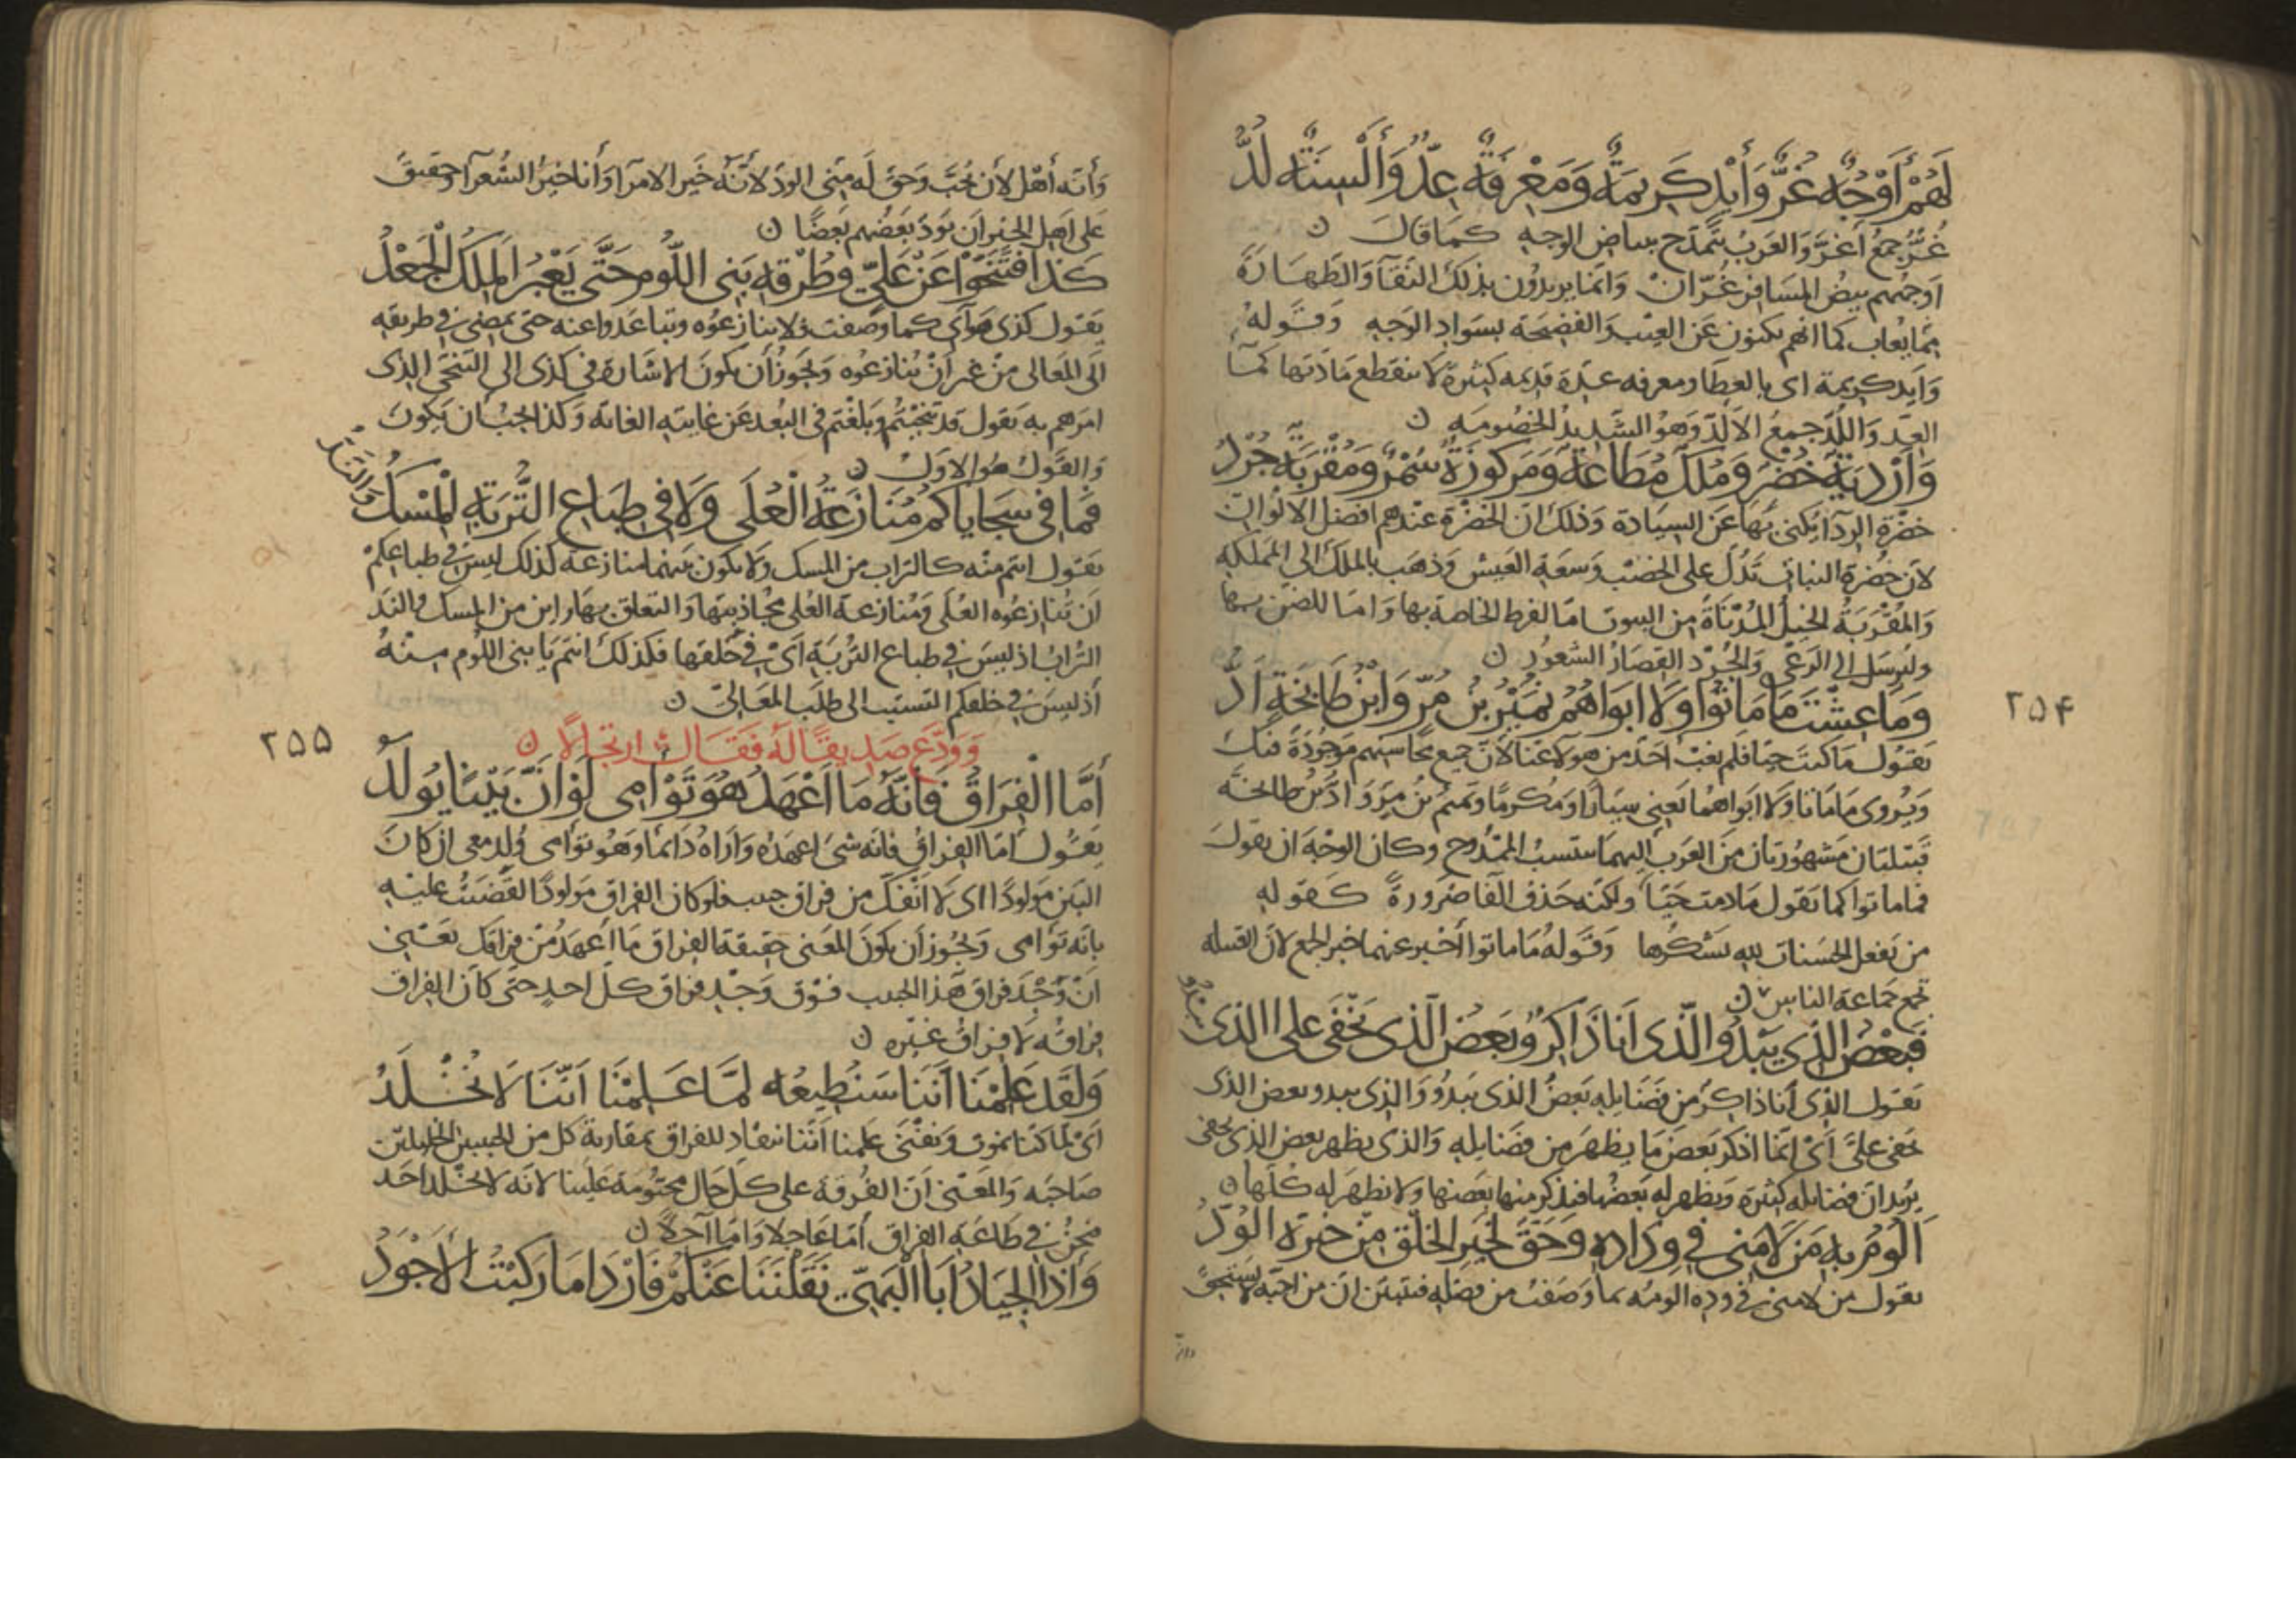 لَهُمْ أَوْجُهٌ غُرٌّ وَأَيْدٍ كَرِيمَةٌ وَمَعْرِفَةٌ عِدٌّ وَأَلْسِنَةٌ لُدُّ
غُرٌّ جمع أغرّ والعرب تتمدّح ببياض الوجه كما قال
اوجههم بيض المسافر غرّان وانما يريدون بذلك النقآ والطهارة
مما يعاب كما انهم يكنون عن العيب والفضيحة بسواد الوجه وقوله
وايد كريمة اى بالعطا ومعرفه عدّة قديمه كثيرة لا ينقطع مادتها كمآ
العدّ واللُدّ جمع الالدّ وهو الشديد الخصومه
وَأَرْدِيَةٌ خُضْرٌ وَمُلْكٌ مُطَاعَةٌ وَمَركُوزَةٌ سُمْرٌ وَمُقْرَبَةٌ جُرْدُ
خضرة الردآ يكنى بها عن السيادة وذلك ان الخضرة عندهم افضل الالوان
لان خضرة النبات تدل على الخصب وسعة العيش وذهب بالملك الى المملكه
والمُقْرَبَةُ الخيل المُدْنَاةُ من البيوت امّا لفرط الخاصة بها واما للضن بها
ولترسل الى الرعى والجُرْد القصار الشعور
وَمَا عِشْتَ مَا مَاتُوا وَلَا ابَوَاهُمُ تَمِيْمُ بْنُ مُرٍّ وَابْنُ طَابِخَةٍ اُدُّ
٢٥۴
يقول ما كنت حيّا فلم يغب احد من هولآ عنا لان جميع محاسنهم موجودة فيك
ويروى ما ماتا ولا ابواهما يعنى سيارا ومكرمًا وتميم بن مر واد بن طابخة
قبيلتان مشهورتان من العرب اليهما ينتسب الممدوح وكان الوجه ان يقول
فما ماتوا كما تقول ما دمت حيّا ولكنه حذف الفا ضرورة كقوله
من يفعل الحسنات الله يشكرها وقوله ما ماتوا أخبر عنهما خبر الجمع لان القبيله
تجمع جماعة الناس
فَبَعْضُ الَّذى يَبْدُو الَّذى اَنَا ذَاكِرٌ وَبَعْضُ الَّذى يَخْفَى على الذى يَبْدُو
يقول الذى أنا ذاكر من فضايله بعض الذى يبدو والذى يبدو بعض الذى
خفى علىّ أى انما اذكر بعض ما يظهر من فضايله والذى يظهر بعض الذى يخفى
يريد ان فضايله كثيرة ويظهر له بعضها فيذكر منها بعضها ولا يظهر له كلها
اَلُومُ بِهِ مَن لَامَنى فى وِدَادِهِ وَحَقَّ لِخَيْرِ الْخَلْقِ مِن خَيْرِهِ الْوُدُّ
يقول من لامنى فى وده الومه بما وصفت من فضله فتبين ان من احبّه لا يستحق
وأنه أهْل لأن يُحَبّ وحق له منى الودّ لأنّه خير الامرآ وأنا خير الشعرآ وحقيق
على اهل الخير ان يودّ بعضهم بعضًا
كَذا فَتَنَحَّوْا عَنْ عَلِيّ وطُرْقِهِ بَنى اللّومِ حَتَّى يَعْبُرَ المَلِكُ الْجَعْدُ
يقول كذى هواى كما وصفت فلا تنازعوه وتباعدوا عنه حتى يمضى فى طريقه
الى المعالى من غير أنْ تنازعوه ويجوز أن يكون الاشارة فى كذى الى التنحى الذى
امرهم به يقول قد تنحيتم وبلغتم فى البعد عن غايته الغاية وكذا يجب ان يكون
والقول هو الاول
فَمَا فى سَجَايَاكُمْ مُنَازَعَةُ الْعُلَى وَلَا فى طِبَاعِ التُّرْبَةِ الْمِسْكُ وَالنَّدُّ
يقول انتم منه كالتراب من المسك ولا يكون بينهما منازعة كذلك ليس فى طباعكم
ان تنازعوه العلى ومنازعة العلى مجاذبتها والتعلق بها واين من المسك والندّ
التراب اذ ليس فى طباع التربة اى فى خلقها فكذلك انتم يا بنى اللوم منه
أذ ليس فى خلقكم التسبب الى طلب المعالى
وَوَدَّع صديقًا له فقال ارتجالًا
٢٥٥
أَمَّا الْفِرَاقُ فَانَّهُ مَا اَعْهَدُ هُوَ تَوْأَمى لَوْ اَنَّ بَيْنًا يُولَدُ
يقول أمّا الفراق فانه شىء اعهده واراه دائما وهو توأمى وُلد معى ان كان
البين مولودًا اى لا انفكّ من فراق حبيب فلو كان الفراق مولودًا لقضيت عليه
بانه توأمى ويجوز ان يكون المعنى حقيقة الفراق ما أعهد من فراقك يعنى
انّ وَجْد فراق هذا الحبيب فوق وجد فراق كل احد حتى كان الفراق
فراقه لا فراق غيره
وَلَقَد عَلِمْنَا أَنَّنَا سَنُطِيعُهُ لَمَّا عَلِمْنَا اَنَّنَا لَا نُخْلَدُ
اى لما كنا نموت ونفنى علمنا أننا ننقاد للفراق بمفارقة كل من الحبيبين الخليلين
صاحبه والمعنى ان الفرقة على كل حال محتومة علينا لانه لا يخلد احد
فنحن فى طاعة الفراق أمّا عاجلا وامّا آجلًا
وَاذَا الْجِيَادُ أَبَا الْبَهِىِّ نَقَلْنَنَا عَنْكُمْ فَاَرْدَا مَا رَكِبْتُ الْاَجْوَدُ